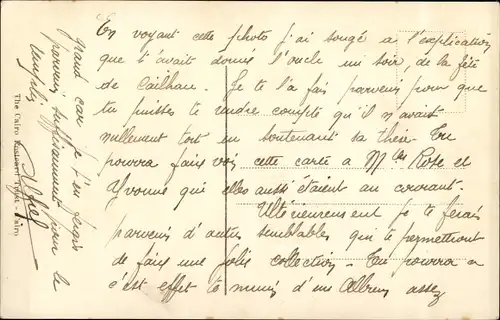 En voyant cette photo j'ai songé a l'explication
que t'avait donné l'oncle un soir, de la fête
de Cailhau. Je te l'a fais parvenir pour que
tu puisses te rendre compte qu'il n'avait
nullement tort en soutenant sa thèse. Tu
pourra faire voir cette carte a Mlles Rose et
Yvonne qui elles aussi étaient au courant.
Ultérieurement je te ferais
parvenir d'autres semblables qui te permettront
de faire une jolie collection - Tu pourra a
c'est effet te munir d'une Album assez
grand car je t'en ferais
parvenir suffisamment pour le
remplir
The Cairo Postcard Trust - Cairo